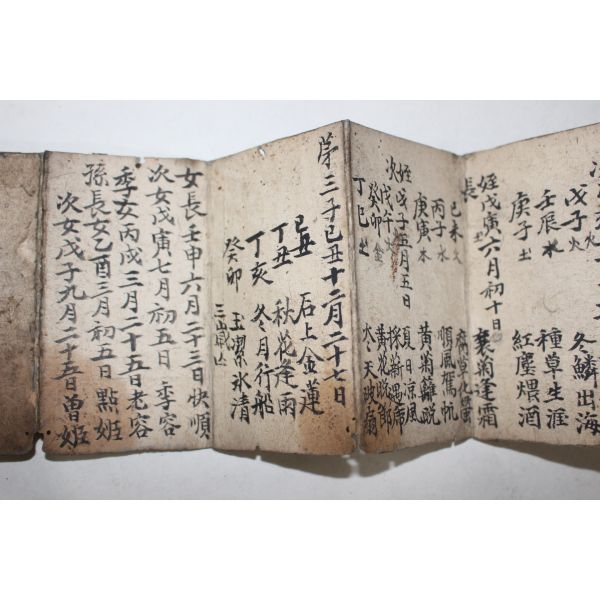 戊子火 冬鱗出海
壬辰水 種草生涯
庚子土 紅塵煨酒
長
姪戊寅六月初十日 襄菊逢霜
己未火
丙子水 順風
庚寅木 黃菊籬
次
姪戊子五月五日 夏日凉風
戊午火
癸卯金 黃花
丁巳土 冬天
第三子己丑十二月二十七日
己丑 石上金蓮
丁丑 秋花逢雨
丁亥 冬月行船
癸卯 玉潔氷清
三歲上
女長壬申六月二十三日快順
次女戊寅七月初五日 季容
季女丙戌三月二十五日老容
孫長女乙酉三月初五日 點姬
次女戊子九月二十五日曾姬